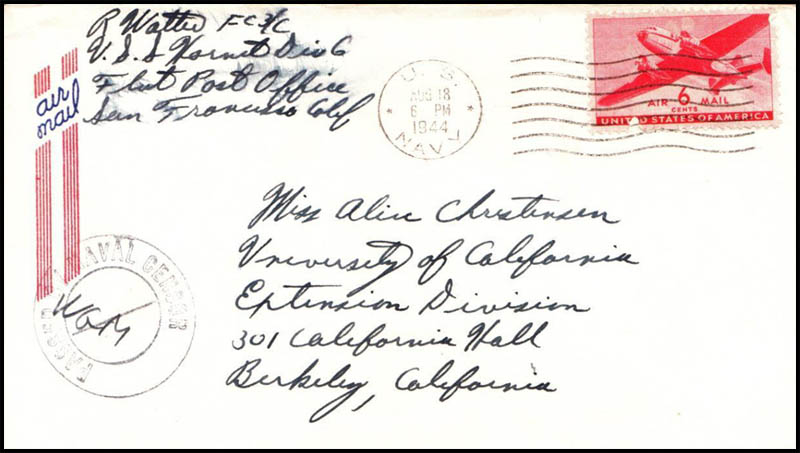 R Watter FC 3/C
U.S.S Hornet Div 6
Fleet Post Office
San Francisco Calif
air
mail
U.S.
AUG 18
6 PM
1944
NAVY
AIR 6 MAIL
CENTS
UNITED STATES OF AMERICA
Miss Alice Christensen
University of California
Extension Division
301 California Hall
Berkeley, California
PASSED BY NAVAL CENSOR